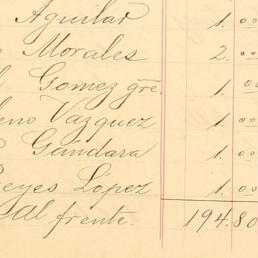 Aguilar 1.00
Morales 2.00
Gomez gre. 1.00
Vazquez 1.00
Gándara 1.00
Reyes López 1.00
al frente. 194.80